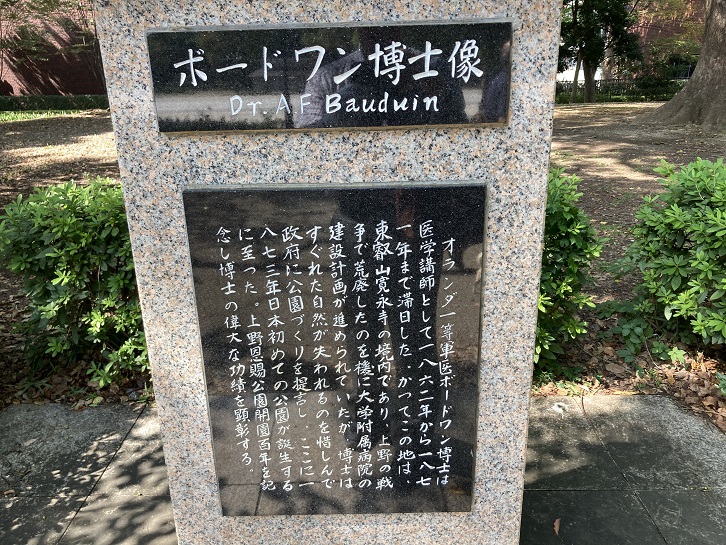 ボードワン博士像
Dr. A F Bauduin
オランダ一等軍医ボードワン博士は
医学講師として一八六二年から一八七
一年まで滞日した．かつてこの地は，
東叡山寛永寺の境内であり，上野の戦
争で荒廃したのを機に大学附属病院の
建設計画が進められていたが，博士は
すぐれた自然が失われるのを惜しんで
政府に公園づくりを提言し，ここに一
八七三年日本初めての公園が誕生する
に至った。上野恩賜公園開園百年を記
念し博士の偉大な功績を顕彰する．